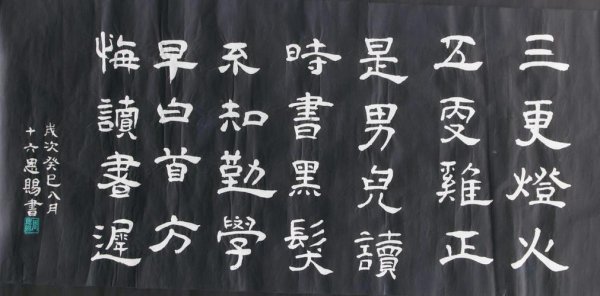 三更燈火
五更雞正
是男兒讀
時書黑髮
不知勤學
早白首方
悔讀書遲
歲次癸巳八月
十六恩賜書